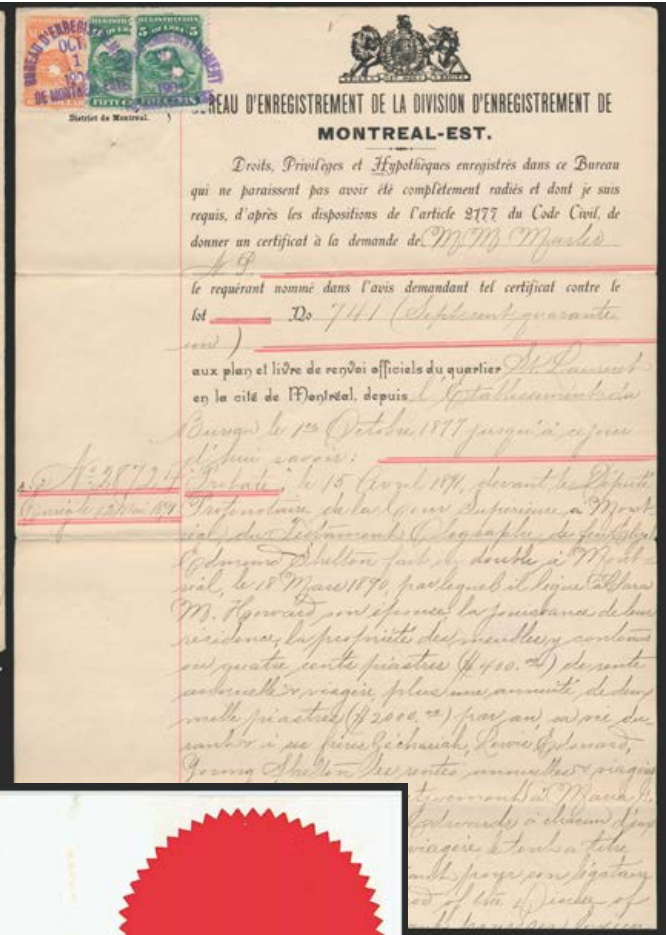 REGISTRATION
5 OF LORA 5
BUREAU D'ENREGISTREMENT
OCT
1
DE MONTREAL
FIFTY CENTS
FIVE CENTS
District de Montreal.
BUREAU D'ENREGISTREMENT DE LA DIVISION D'ENREGISTREMENT DE
MONTREAL-EST.
Droits, Privilèges et Hypothèques enregistrés dans ce Bureau
qui ne paraissent pas avoir été complètement radiés et dont je suis
requis, d'après les dispositions de l'article 2177 du Code Civil, de
donner un certificat à la demande de M M Marler
N. P.
le requérant nommé dans l'avis demandant tel certificat contre le
lot No 741 (Sept cent quarante
un)
aux plan et livre de renvoi officiels du quartier St. Laurent
en la cité de Montréal, depuis l'Etablissement du
Bureau le 1er Octobre 1877 jusqu'à ce jour
d'hui savoir:
No. 28724
Probaté, le 15 Avril 1891, devant le Député
Protonotaire de la Cour Supérieure, à Mont
réal, du Testament Olographe de feu
Edmond Shelton fait en double à Mont
réal, le 18 Mars 1890, par lequel il lègue à Clara
M. Howard son épouse la jouissance de leur
résidence, la propriété des meubles y contenus
ou quatre cents piastres ($400.00) de rente
annuelle & viagère plus une annuité de deux
mille piastres ($2000.00) par an, sa vie du-
rant & à ses frères Zéchariah, Lewis Edouard,
Young Shelton les rentes annuelles & viagères
à Maria
Edwards à chacun d'eux
viagère & tenant à titre
pour son légataire
of the Diocese of